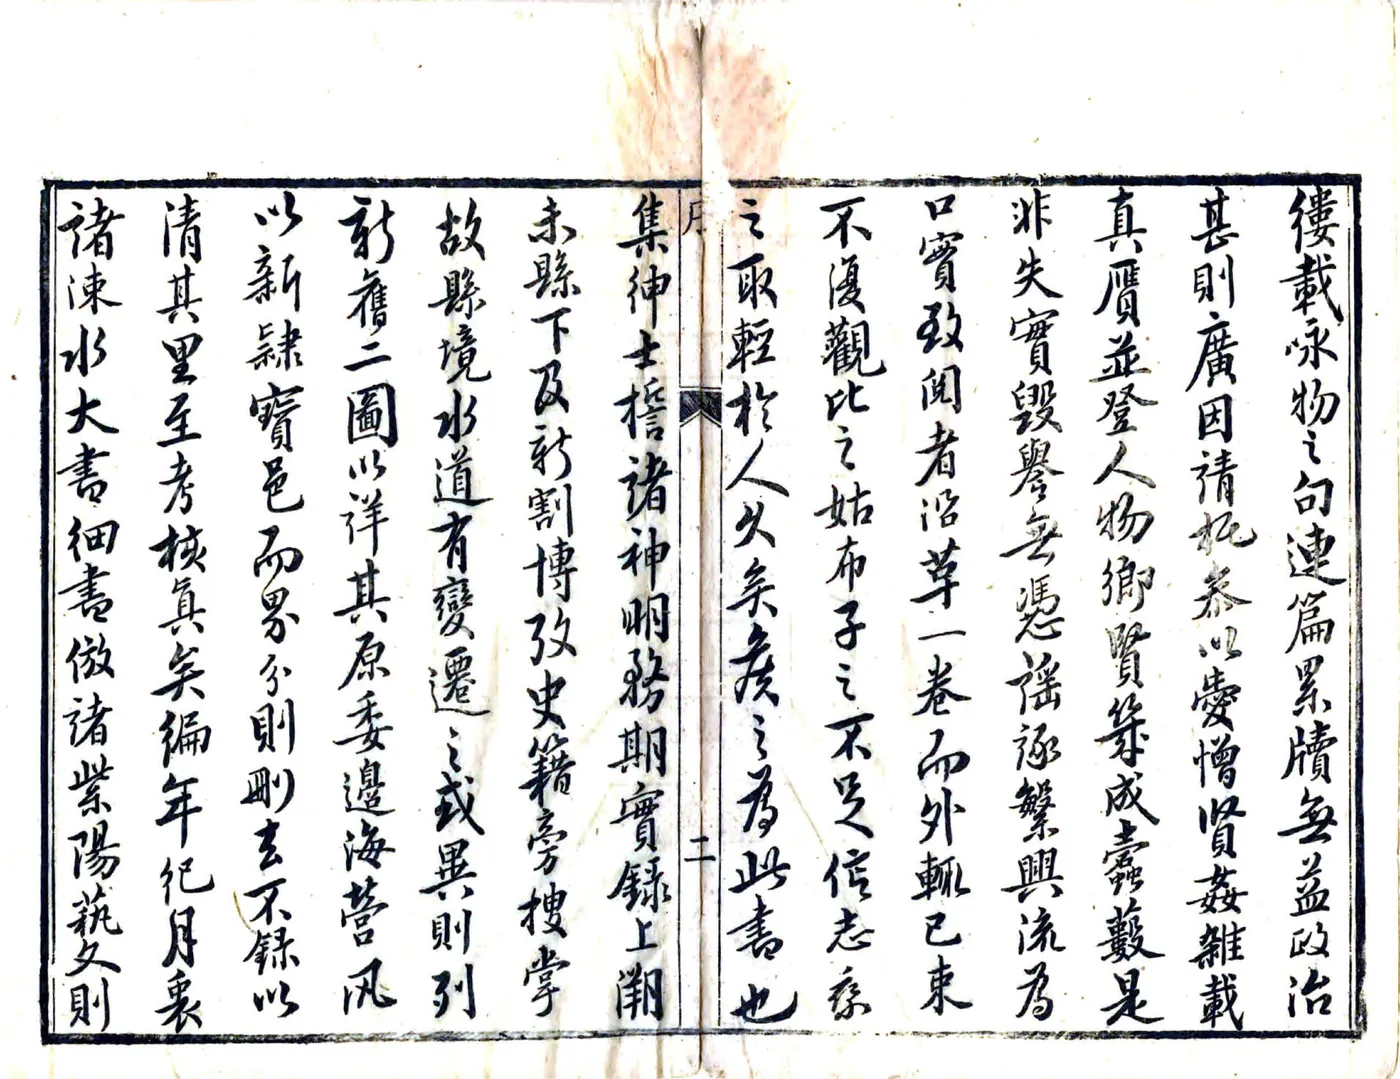 縷載咏物之句連篇累牘無益政治
甚則廣因請托恭以愛憎賢姦雜載
真贋並登人物鄉賢築成蠹藪是
非失實毀譽無憑謡諑繁興流為
口實致閱者沿草一卷而外輒已束
不復觀比之姑布子之不足信志乘
之取輕於人久矣矦之為此書也
序
二
集紳士摿諸神明務期實録上溯
未縣下及新割博攷史籍旁搜掌
故縣境水道有變遷之或異則列
新舊二圖以詳其原委邊海營汛
以新隷寶邑而界分則刪去不録以
清其里至考核真矣編年祀月裏
諸涑水大書細書倣諸紫陽藝文則